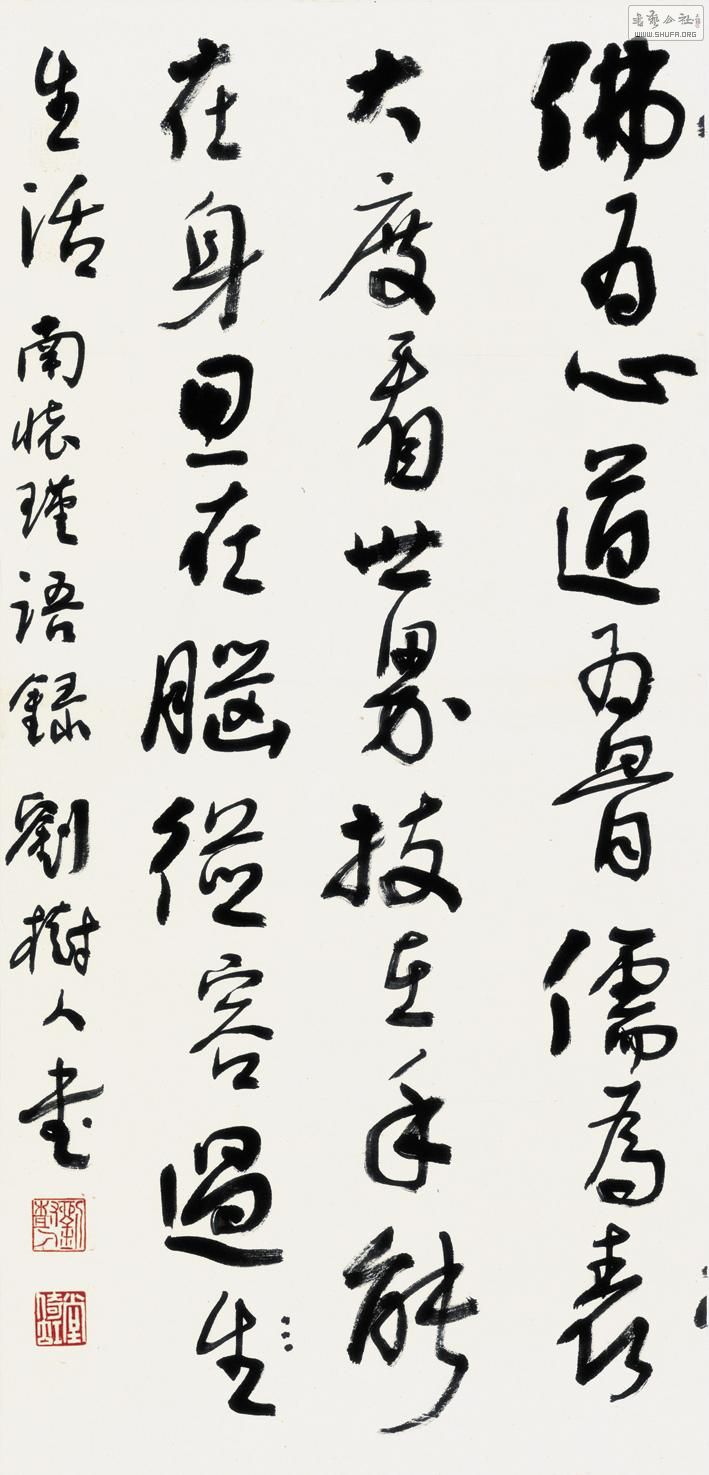 書藝公社
WWW.SHUFA.ORG
佛为心道为骨儒為表
大度看世界技在手能
在身思在腦從容過生
生活 南懷瑾語錄 劉樹人書
劉樹人